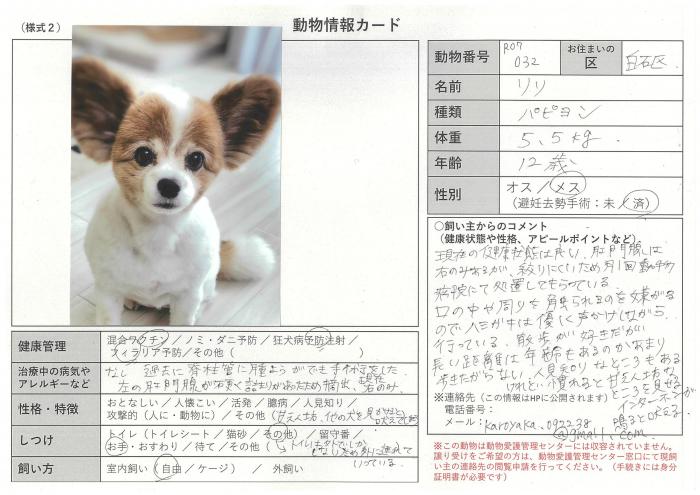 （様式２）
動物情報カード
動物番号 R07 032 お住まいの区 白石区
名前 リリ
種類 パピヨン
体重 5.5kg
年齢 12歳
性別 オス／メス
（避妊去勢手術：未／済）
○飼い主からのコメント
（健康状態や性格、アピールポイントなど）
現在の健康状態は良い。肛門腺は
右のみあるが、絞りにくいため月1回動物
病院にて処置してもらっている。
口の中や周りを触られるのを嫌がる
ので、ハミガキは優しく声かけしながら
行っている。散歩が好きだが
長い距離は年齢もあるのかあまり
歩きたがらない。人見知りなところもある
けれどい慣れると甘えん坊な
ところを見せる。
インターホンが
鳴ると吠える。
※連絡先（この情報はHPに公開されます）
電話番号：
メール：karoyaka.092238
@gmail.com
※この動物は動物愛護管理センターには収容されていません。
譲り受けをご希望の方は、動物愛護管理センター窓口にて現飼
い主の連絡先の閲覧申請を行ってください。（手続きには身分
証明書が必要です）
健康管理 混合ワクチン／ノミ・ダニ予防／狂犬病予防注射／
フィラリア予防／その他（　　　）
治療中の病気や
アレルギーなど
なし 過去に脊柱管に腫ようができ手術をした。
左の肛門腺が 詰まりがあったため摘出、現在右のみ。
性格・特徴 おとなしい／人懐こい／活発／臆病／人見知り／
攻撃的（人に・動物に）／その他（甘えん坊、他の犬を見かけると吠える
しつけ トイレ（トイレシート／猫砂／その他）／留守番
お手・おすわり／待て／その他（トイレは外でしか
しないため外に連れて
いっている。
飼い方 室内飼い（自由／ケージ）／外飼い